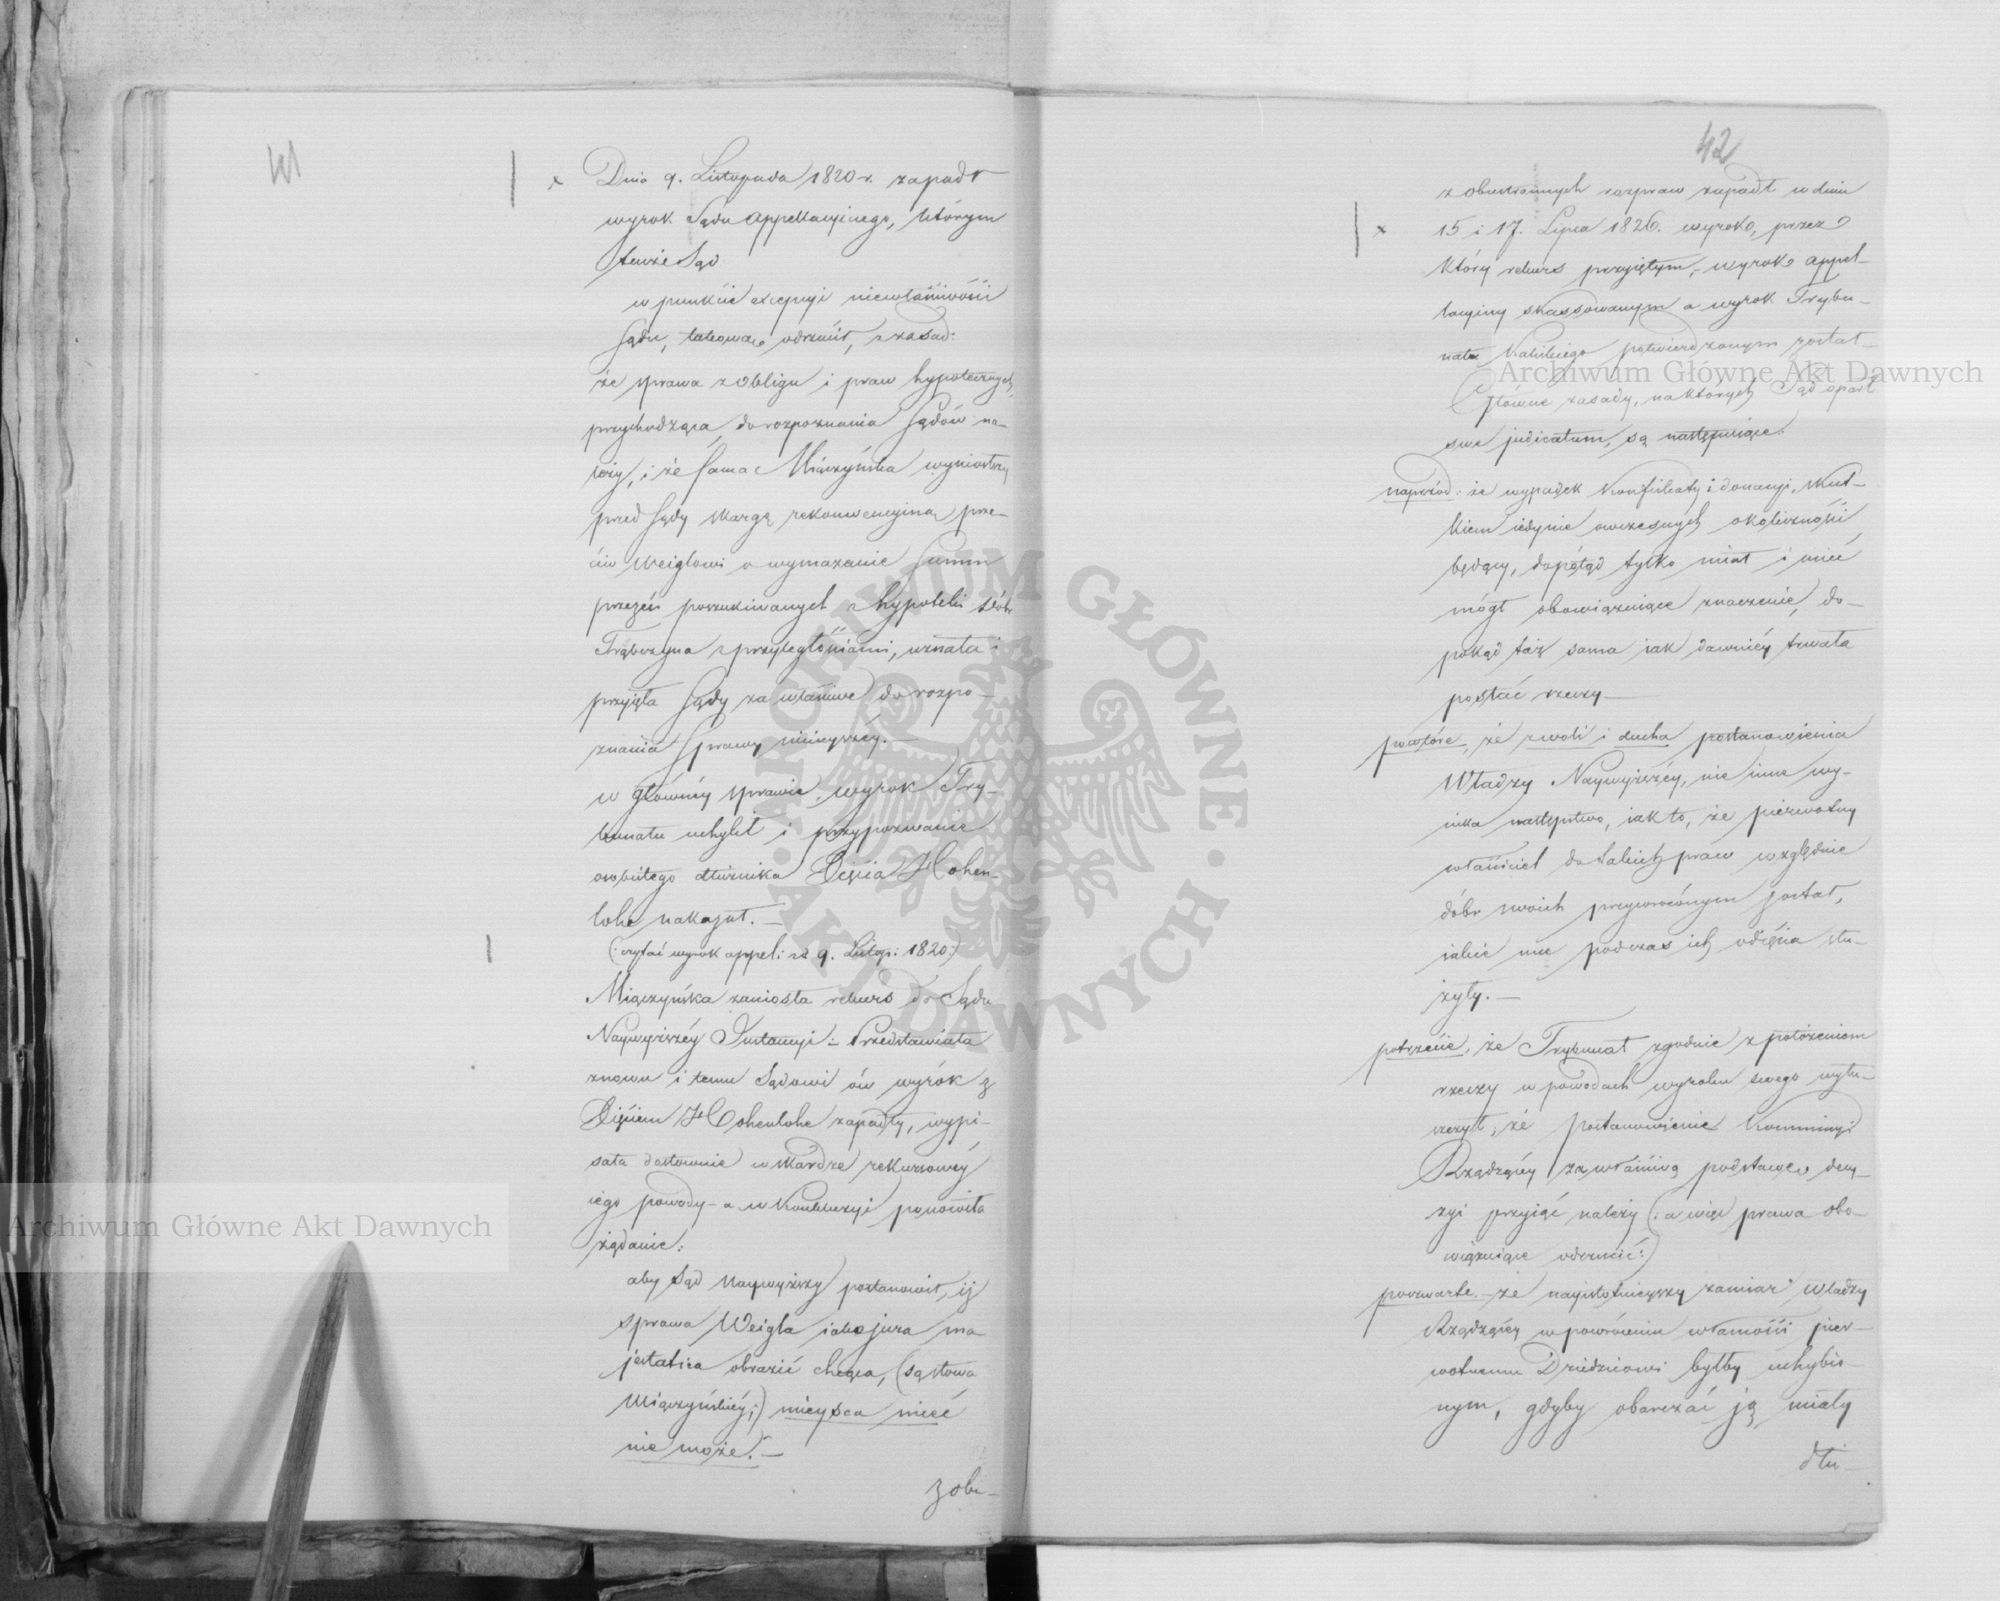 41
x Dnia 9. Listopada 1820 r. zapadł
wyrok Sądu Appellacyinego, którym
tenże Sąd
w punkcie excepcyi niewłaściwości
Sądu, takową odrzucił, z zasad:
że sprawa z obligu i praw hypotecznych
przychodząca, do rozpoznania Sądów na-
leży, i że sama Miączyńska wyniosłszy
przed Sądy skargę rekonwencyiną prze-
ciw Weiglowi o wymazanie Summ
przezeń poszukiwanych z hypoteki dóbr
Trąbczyna z przyległościami, uznała i
przyięła Sądy za właściwe do rozpo-
znania Sprawy ninieyszéy.—
w głównéy sprawie, wyrok Try-
bunału uchylił i przypozwanie
osobistego dłużnika Xięcia Hohen-
lohe nakazał.—
(: czytać wyrok appel: z d. 9. Listop: 1820:)
Miączyńska zaniosła rekurs do Sądu
Naywyższéy Instancyi: Przedstawiała
znowu i temu Sądowi ów wyrok z
Xięciem Hohenlohe zapadły, wypi-
sała dosłownie w skardze rekursowéy
iego powody – a w Konkluzyi ponowiła
żądanie:
aby Sąd Naywyższy postanowił, iż
sprawa Weigla iako jura ma-
jestatica obrazić chcąca, (są słowa
Miączyńskiéy;) mieysca mieć
nie może.—
z obu-
42
z obustronnych rozpraw zapadł w dniu
x 15 i 17. Lipca 1826. wyrok, przez
który rekurs przyiętym, wyrok appel-
lacyiny skassowanym a wyrok Trybu-
nału Kaliskiego potwierdzonym został—
Główne zasady, na których Sąd oparł
swe judicatum, są następuiące:
naprzód: że wypadek Konfiskaty i donacyi, skut-
kiem iedynie owczesnych okoliczności
będący, dopótąd tylko miał i mieć
mógł obowiązuiące znaczenie, do-
pokąd taż sama iak dawniéy trwała
postać rzeczy—
powtóre, że z woli i ducha postanowienia
Władzy Naywyższéy, nie inne wy-
nika następstwo, iak to, że pierwotny
właściciel do takich praw względnie
dóbr swoich przywróconym został,
iakie mu podczas ich odięcia słu-
żyły.—
potrzecie, że Trybunał zgodnie z położeniem
rzeczy w powodach wyroku swego wytłu-
szczył, że postanowienie Kommissyi
Rządzącéy za właściwą podstawę decy-
zyi przyiąć należy (: a więc prawa obo-
wiązuiące odrzucić:)
poczwarte.— że nayistotnieyszy zamiar Władzy
Rządzącéy w powróceniu własności pier-
wotnemu Dziedzicowi byłby uchybio-
nym, gdyby obarczać ją miały
dłu-
Archiwum Główne Akt Dawnych
Archiwum Główne Akt Dawnych
ARCHIWUM GŁÓWNE · AKT DAWNYCH ·